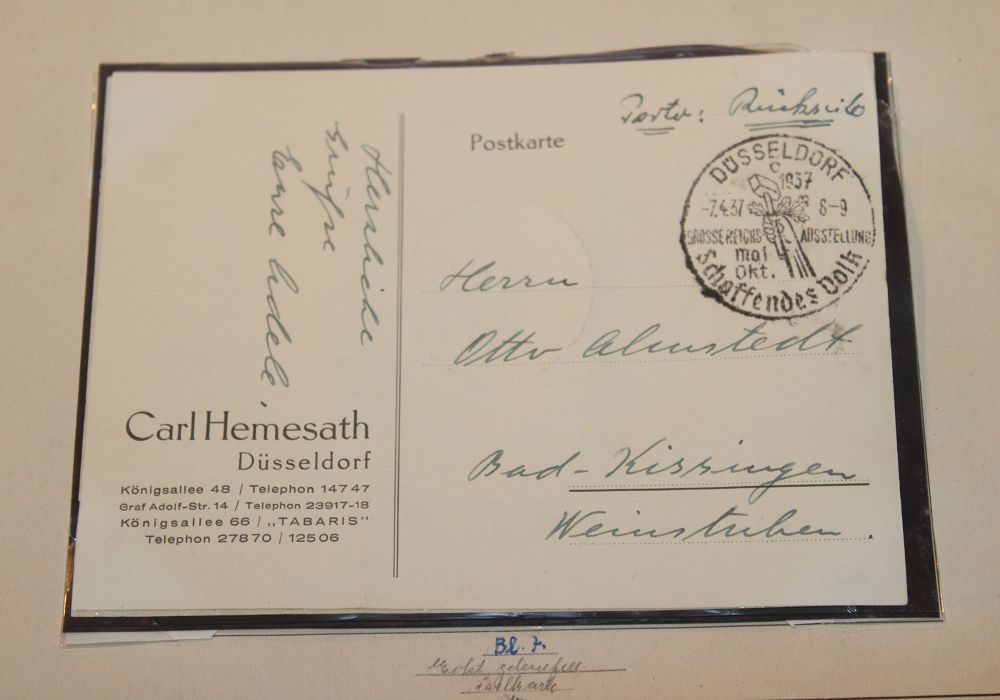 Porto: Rückseite
Postkarte
DÜSSELDORF
c
1937
-7.4.37 8-9
GROSSE REICHS AUSSTELLUNG
Mai
Okt.
Schaffendes Volk
Herzliche
Grüße
Eure Adele.
Herrn
Otto Almstedt
Bad-Kissingen
Weinstuben.
Carl Hemesath
Düsseldorf
Königsallee 48 / Telephon 147 47
Graf Adolf-Str. 14 / Telephon 23917-18
Königsallee 66 / „TABARIS"
Telephon 278 70 / 125 06
Bl. 7.